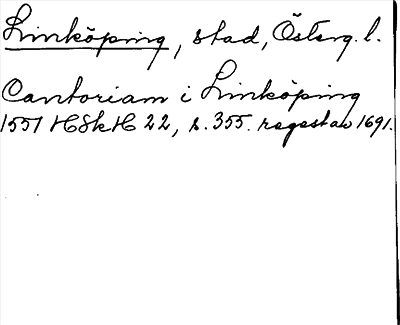 Linköping, stad, Österg. l.
Cantoriam i Linköping
1551 HSkH 22, s. 355. regestav 1691.